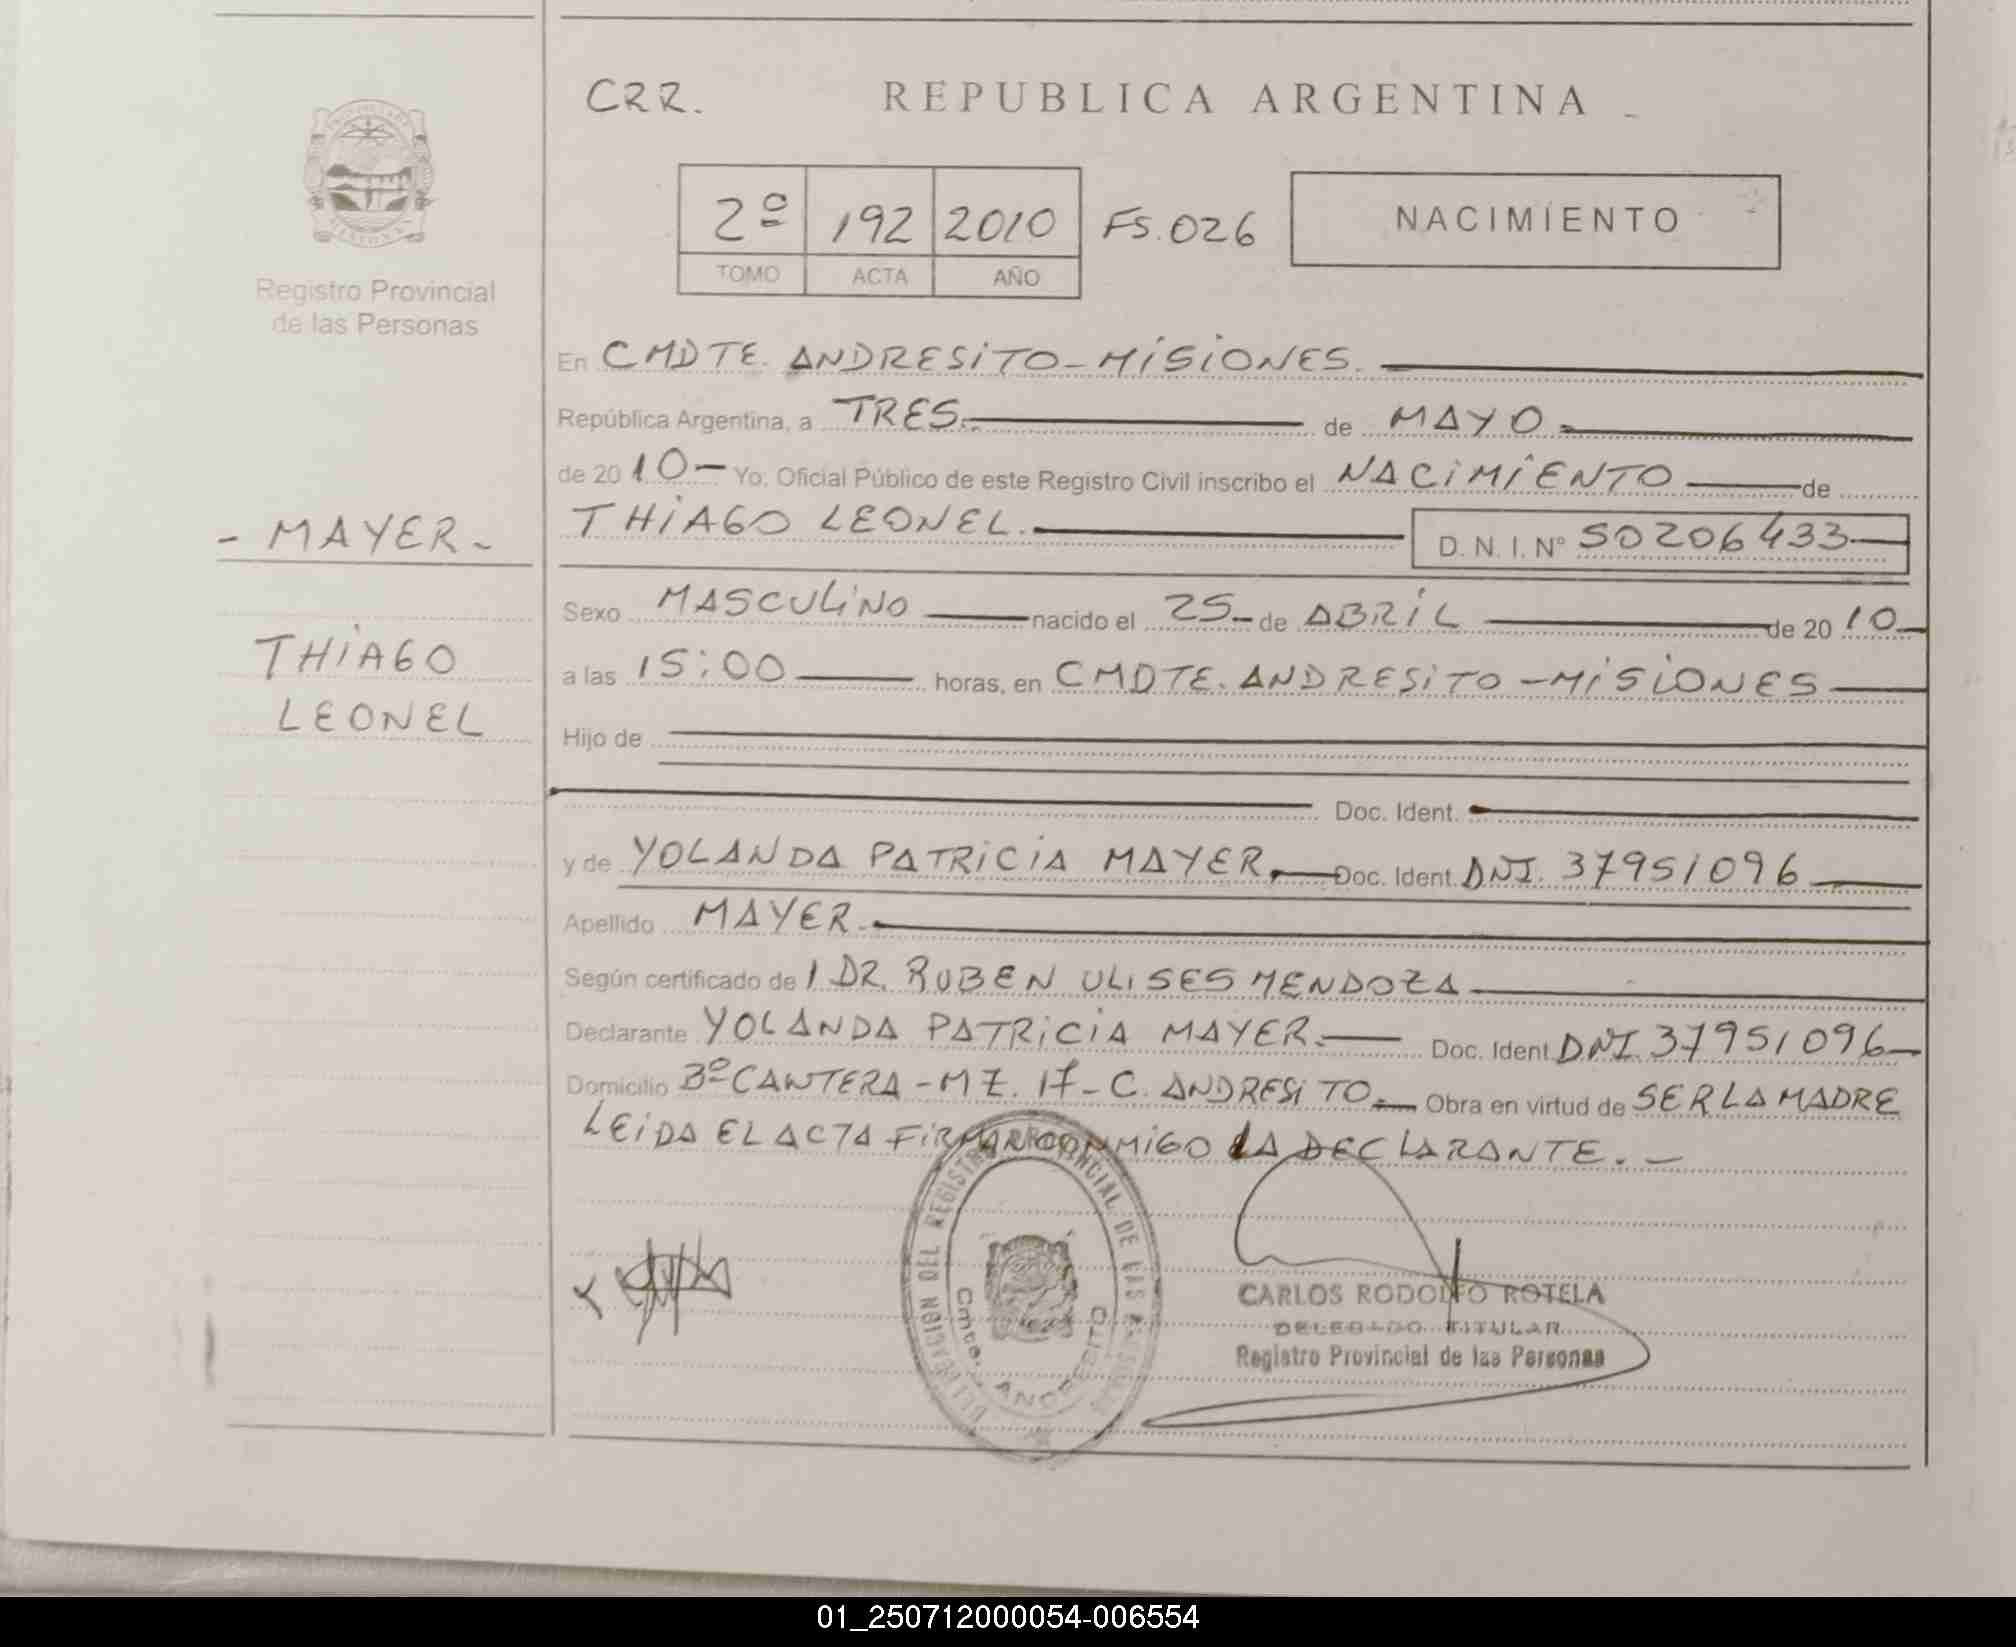 CRR. REPUBLICA ARGENTINA
2º 192 2010 FS. 026 NACIMIENTO
TOMO ACTA AÑO
Registro Provincial
de las Personas
En CMDTE. ANDRESITO - MISIONES.
República Argentina, a TRES. de MAYO
de 20 10 - Yo, Oficial Público de este Registro Civil inscribo el NACIMIENTO de
THIAGO LEONEL. D. N. I. Nº 50206433
- MAYER -
THIAGO
LEONEL
Sexo MASCULINO nacido el 25 de ABRIL de 20 10
a las 15:00 horas, en CMDTE. ANDRESITO - MISIONES
Hijo de
Doc. Ident.
y de YOLANDA PATRICIA MAYER. Doc. Ident. DNI. 37951096
Apellido MAYER.
Según certificado de 1 DR. RUBEN ULISES MENDOZA
Declarante YOLANDA PATRICIA MAYER. Doc. Ident. DNI. 37951096
Domicilio Bº CANTERA - MZ. 17 - C. ANDRESITO. Obra en virtud de SER LA MADRE
LEIDA EL ACTA FIRMAR CONMIGO LA DECLARANTE. -
DELEGACION DEL REGISTRO PROVINCIAL DE LAS PERSONAS
Cmte. ANDRESITO
CARLOS RODOLFO ROTELA
DELEGADO TITULAR
Registro Provincial de las Personas
01_250712000054-006554